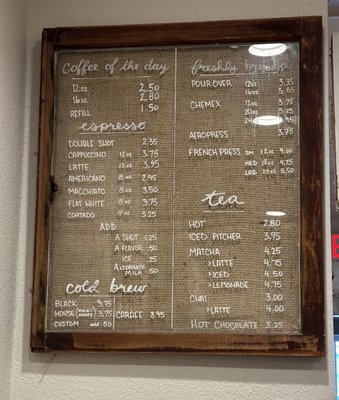 Coffee of the day
12oz 2.50
16oz 2.80
REFILL 1.50
espresso
DOUBLE SHOT 2.35
CAPPUCCINO 12oz 3.75
LATTE 12oz 3.75
AMERICANO 8oz 2.95
MACCHIATO 8oz 3.50
FLAT WHITE 8oz 3.75
CORTADO 4oz 3.25
ADD
A SHOT 1.25
A FLAVOR .50
ICE .25
ALTERNATE MILK .50
cold brew
BLACK 3.75
HOUSE 3.75
CUSTOM ADD .50
CARAFE 8.95
freshly brewed
POUR OVER 12oz 3.35
16oz 3.85
CHEMEX 12oz 3.75
20oz
24oz
AEROPRESS 3.75
FRENCH PRESS SM 12oz 4.00
MED 4.75
LRG 5.50
tea
HOT 2.80
ICED PITCHER 3.95
MATCHA 4.25
>LATTE 4.75
>ICED 4.50
>LEMONADE 4.75
CHAI 3.00
>LATTE 4.00
HOT CHOCOLATE 3.25